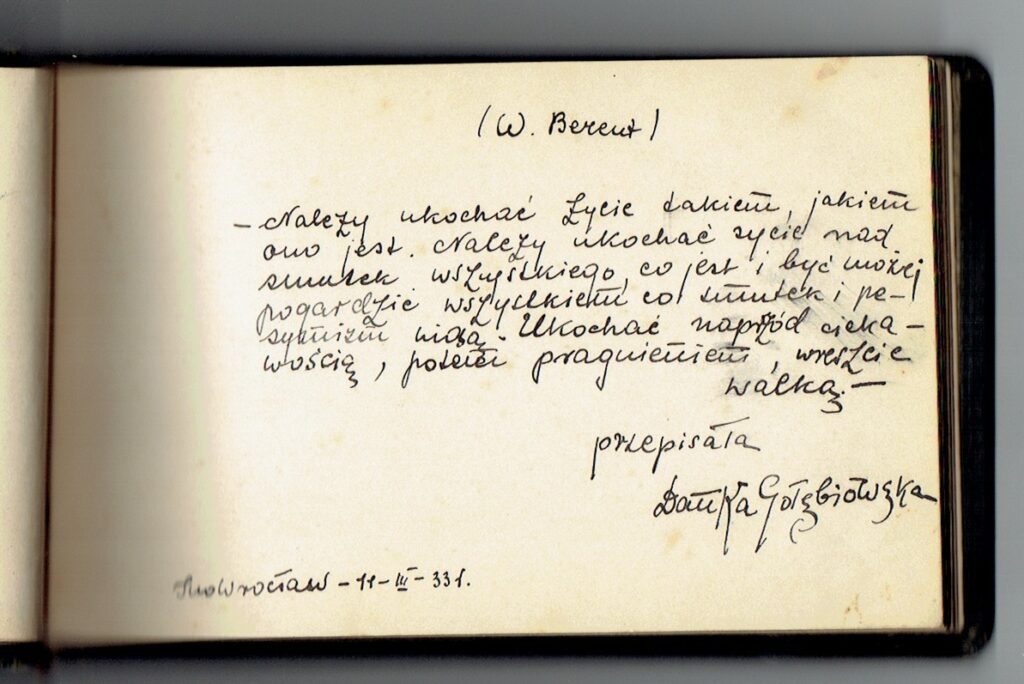 (W. Berent)
- Należy ukochać życie takiem, jakiem
ono jest. Należy ukochać życie nad
smutek wszystkiego, co jest i być może, i
pogardzić wszystkiem, co smutek i pe-
symizm niosą. Ukochać naprzód cieka-
wością, potem pragnieniem, wreszcie
walką. -
przepisała
Danka Gołębiowska
Inowrocław - 11 - III - 33 r.